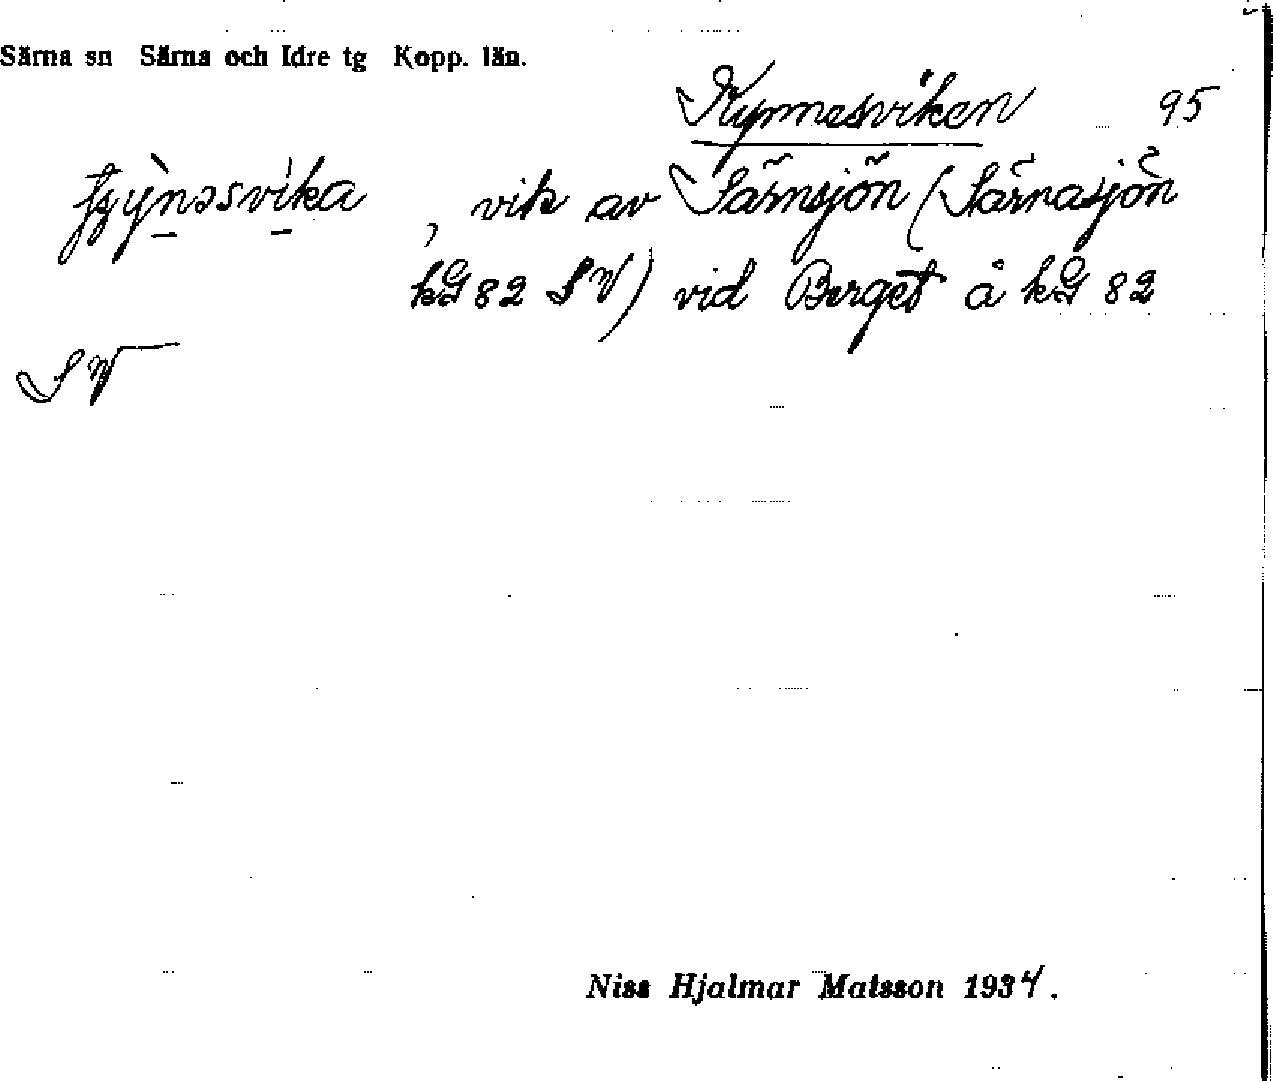 Särna sn Särna och Idre tg Kopp. län.
Kynnesviken 95
, vik av Särnsjön (Särnasjön
kG 82 SV) vid Berget å kG 82
SV
Niss Hjalmar Matsson 1934.